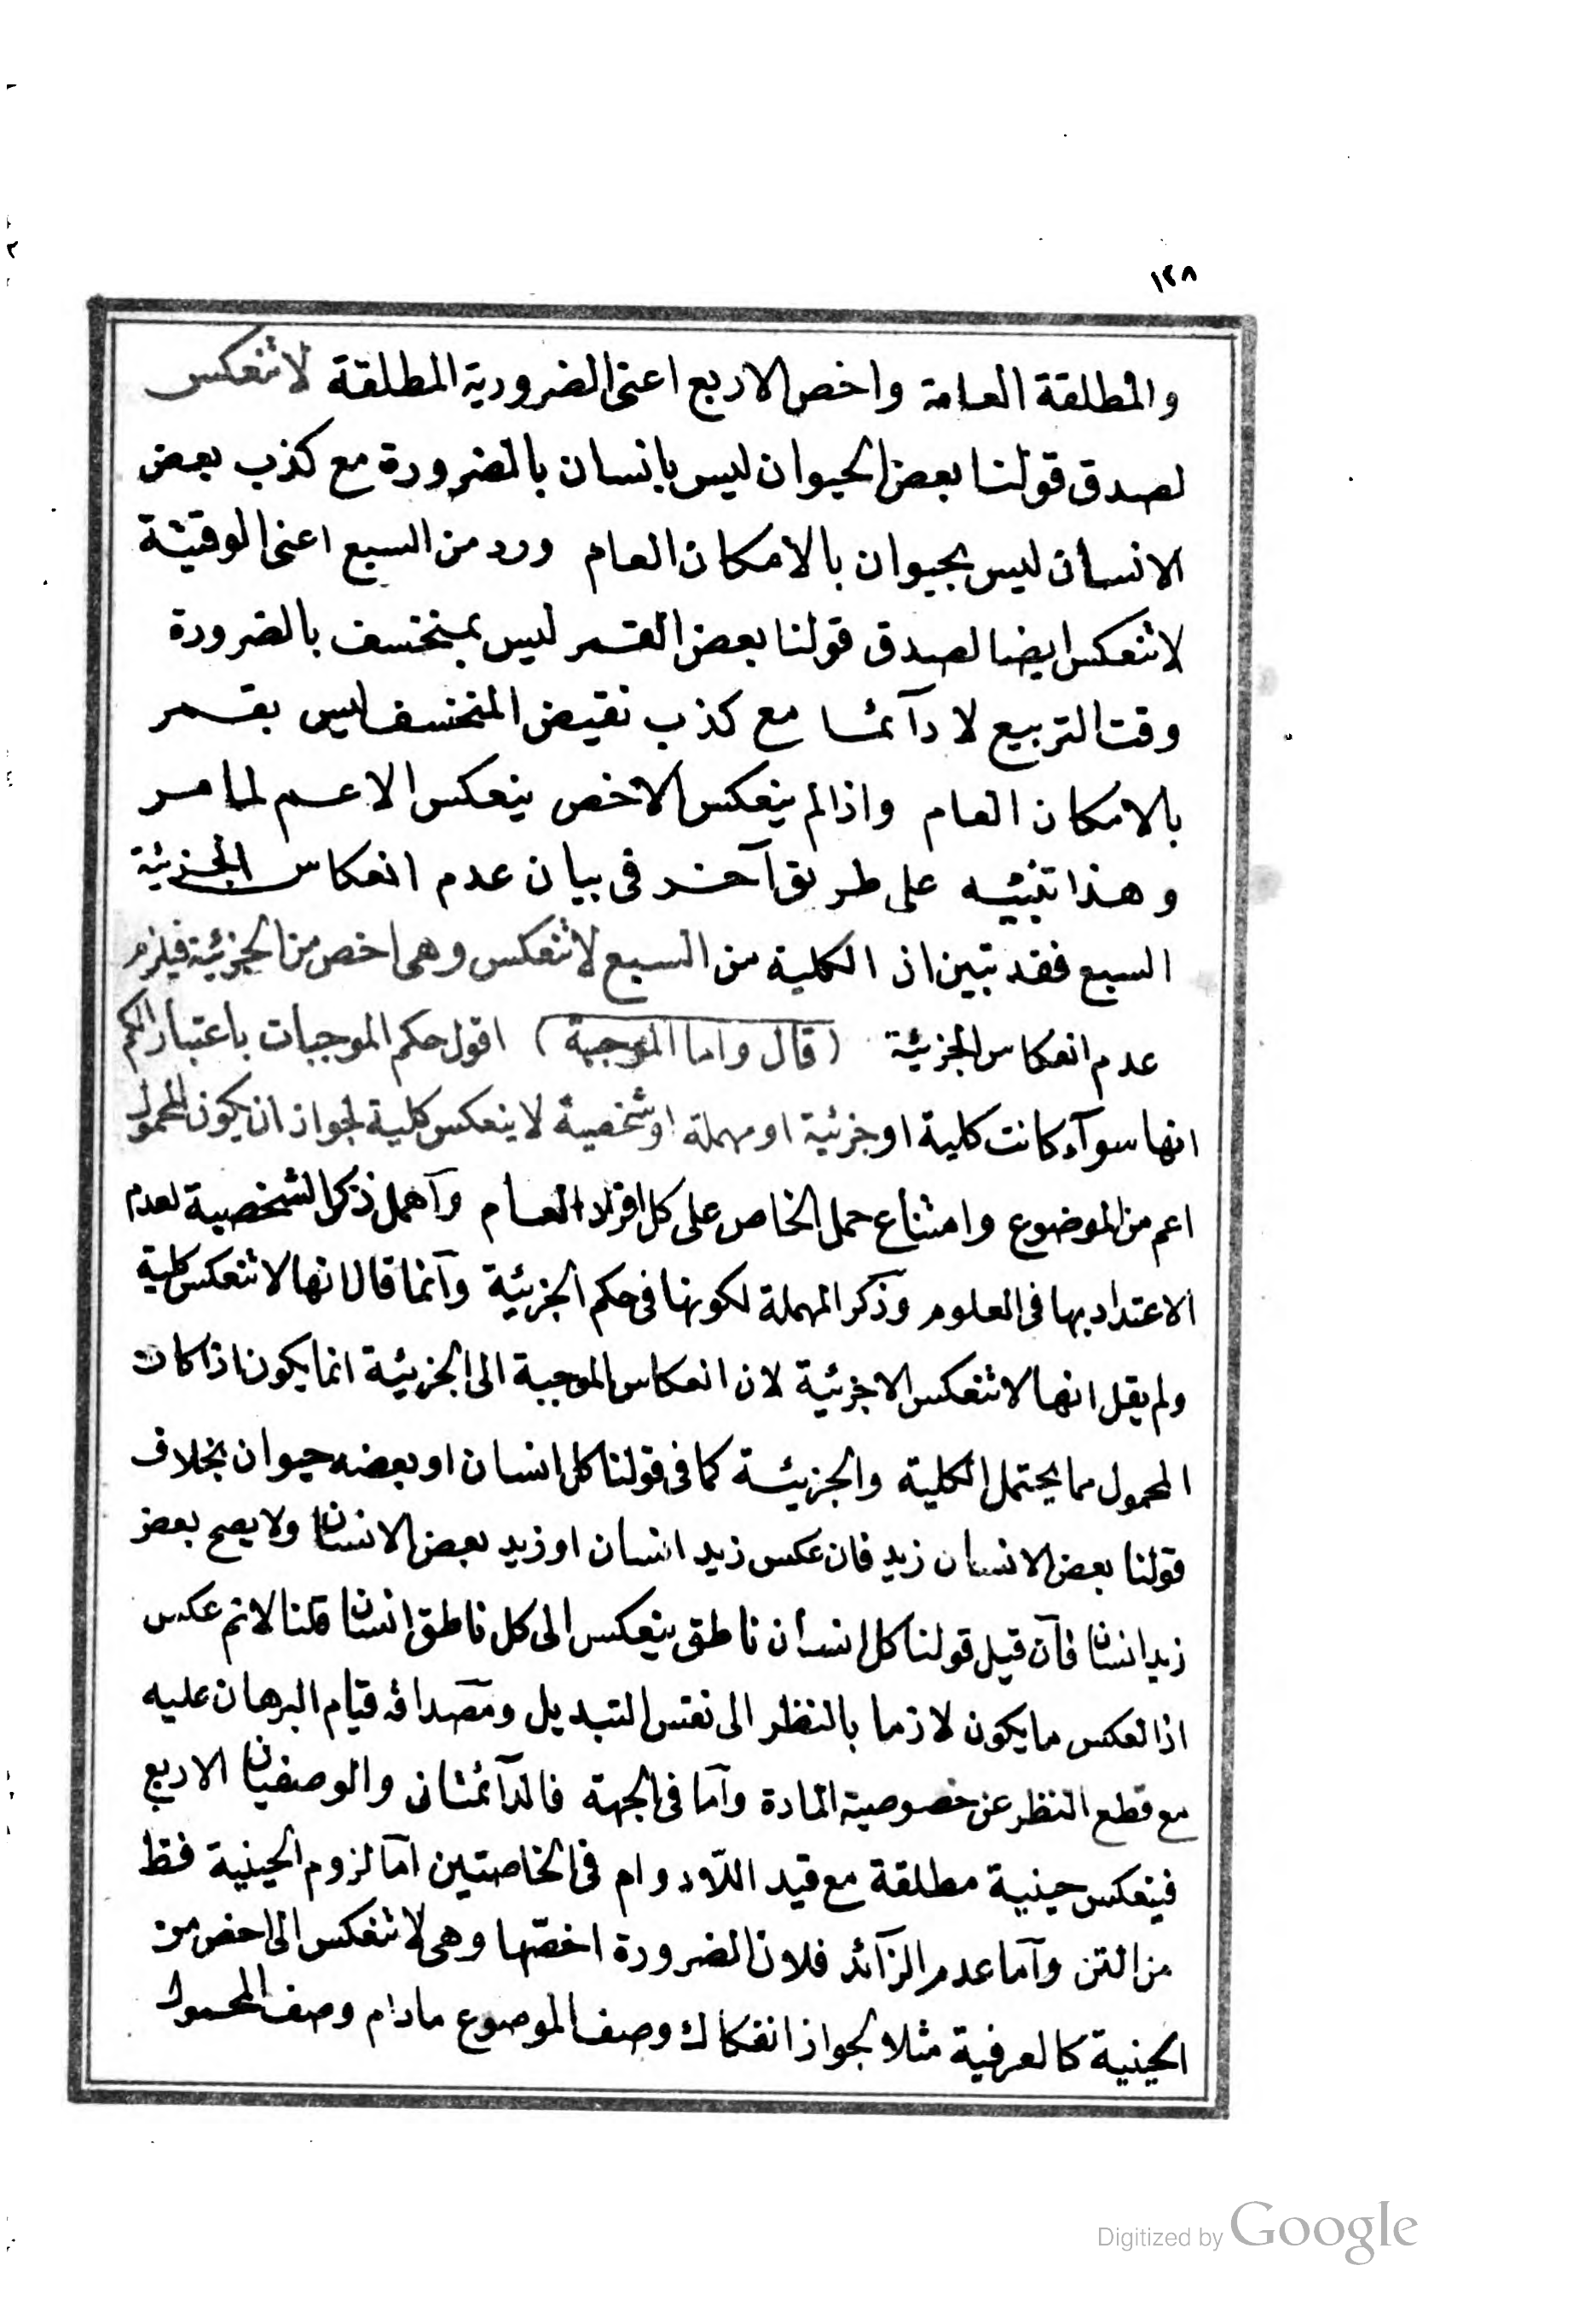 ١٢٨
والمطلقة العامة واخص الاربع اعنى الضرورية المطلقة لاتنعكس
لصدق قولنا بعض الحيوان ليس بانسان بالضرورة مع كذب بعض
الانسان ليس بحيوان بالامكان العام ورد من السبع اعنى الوقتية
لاتنعكس ايضا لصدق قولنا بعض القمر ليس بمنخسف بالضرورة
وقت التربيع لا دآئما مع كذب نقيض المنخسف ليس بقمر
بالامكان العام واذا لم ينعكس الاخص ينعكس الاعم لما مر
وهذا تنبيه على طريق آخر فى بيان عدم انعكاس الجزئية
السبع فقد تبين اذ الكلية من السبع لاتنعكس وهى اخص من الجزئية فيلزم
عدم انعكاس الجزئية (قال واما الموجبة) اقول حكم الموجبات باعتبار الكم
انها سوآء كانت كلية او جزئية او مهملة او شخصية لا ينعكس كلية لجواز ان يكون المحمول
اعم من الموضوع وامتناع حمل الخاص على كل افراد العام وآهمل ذكر الشخصية لعدم
الاعتداد بها فى العلوم وذكر المهملة لكونها فى حكم الجزئية وآنما قال انها لاتنعكس كلية
ولم يقل انها لاتنعكس الا جزئية لان انعكاس الموجبة الى الجزئية انما يكون اذا كان
المحمول مما يحتمل الكلية والجزيئة كما فى قولنا كل انسان او بعضه حيوان بخلاف
قولنا بعض الانسان زيد فان عكس زيد انسان او زيد بعض الانسان ولا يصح بعض
زيد انسان فآن قيل قولنا كل انسان ناطق ينعكس الى كل ناطق انسان قلنا لانم عكس
اذا لعكس ما يكون لازما بالنظر الى نفس التبديل ومصداقه قيام البرهان عليه
مع قطع النظر عن خصوصية المادة وآما فى الجهة فالدآئمتان والوصفيان الاربع
فينعكس حينية مطلقة مع قيد اللادوام فى الخاصتين امآ لزوم الحينية فقط
من التن وآما عدم الزآئد فلان الضرورة اخصها وهى لاتنعكس الى اخص من
الحينية كالعرفية مثلا لجواز انفكاك وصف الموضوع مادام وصف المحمول
Digitized by Google